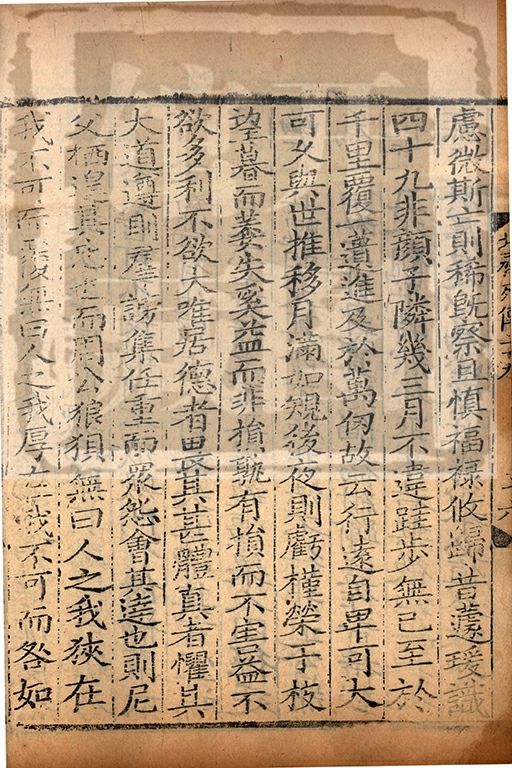 慮微斯亡則稀旣察且慎福禄攸歸昔蘧瑗識
四十九非顔子隣幾三月不違跬歩無已至於
千里覆一蕢進及於萬仞故云行逺自卑可大
可久與世推移月滿如䂓後夜則虧槿榮于枝
望暮而萎夫奚益而非損孰有損而不害益不
欲多利不欲大唯居德者畏其甚體真者懼其
大道遵則羣謗集任重而衆怨會其逹也則尼
父栖遑其忠也而周公狼狽無曰人之我狹在
我不可而覆無曰人之我厚在我不可而咎如
北齊列傳二十九